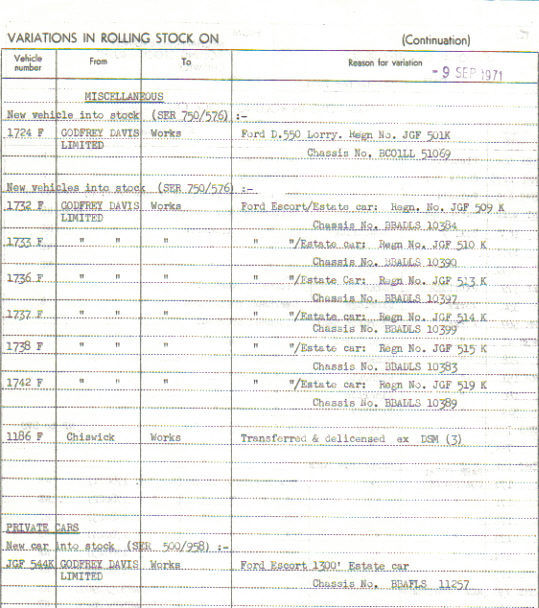 VARIATIONS IN ROLLING STOCK ON (Continuation)
Vehicle number From To Reason for variation
- 9 SEP 1971
MISCELLANEOUS
New vehicle into stock (SER 750/576) :-
1724 F GODFREY DAVIS Works Ford D.550 Lorry. Regn No. JGF 501K
LIMITED
Chassis No. BCO1LL 51069
New vehicles into stock (SER 750/576) :-
1732 F GODFREY DAVIS Works Ford Escort/Estate car: Regn. No. JGF 509 K
LIMITED
Chassis No. BBADLS 10384
1733 F " " " "/Estate car: Regn No. JGF 510 K
Chassis No. BBADLS 10390
1736 F " " " "/Estate Car: Regn No. JGF 513 K
Chassis No. BBADLS 10397
1737 F " " " "/Estate car: Regn No. JGF 514 K
Chassis No. BBADLS 10399
1738 F " " " "/Estate car: Regn No. JGF 515 K
Chassis No. BBADLS 10383
1742 F " " " "/Estate car: Regn No. JGF 519 K
Chassis No. BBADLS 10389
1186 F Chiswick Works Transferred & delicensed ex DSM (3)
PRIVATE CARS
New car into stock (SER 500/958) :-
JGF 544K GODFREY DAVIS Works Ford Escort 1300' Estate car
LIMITED
Chassis No. BBAFLS 11257